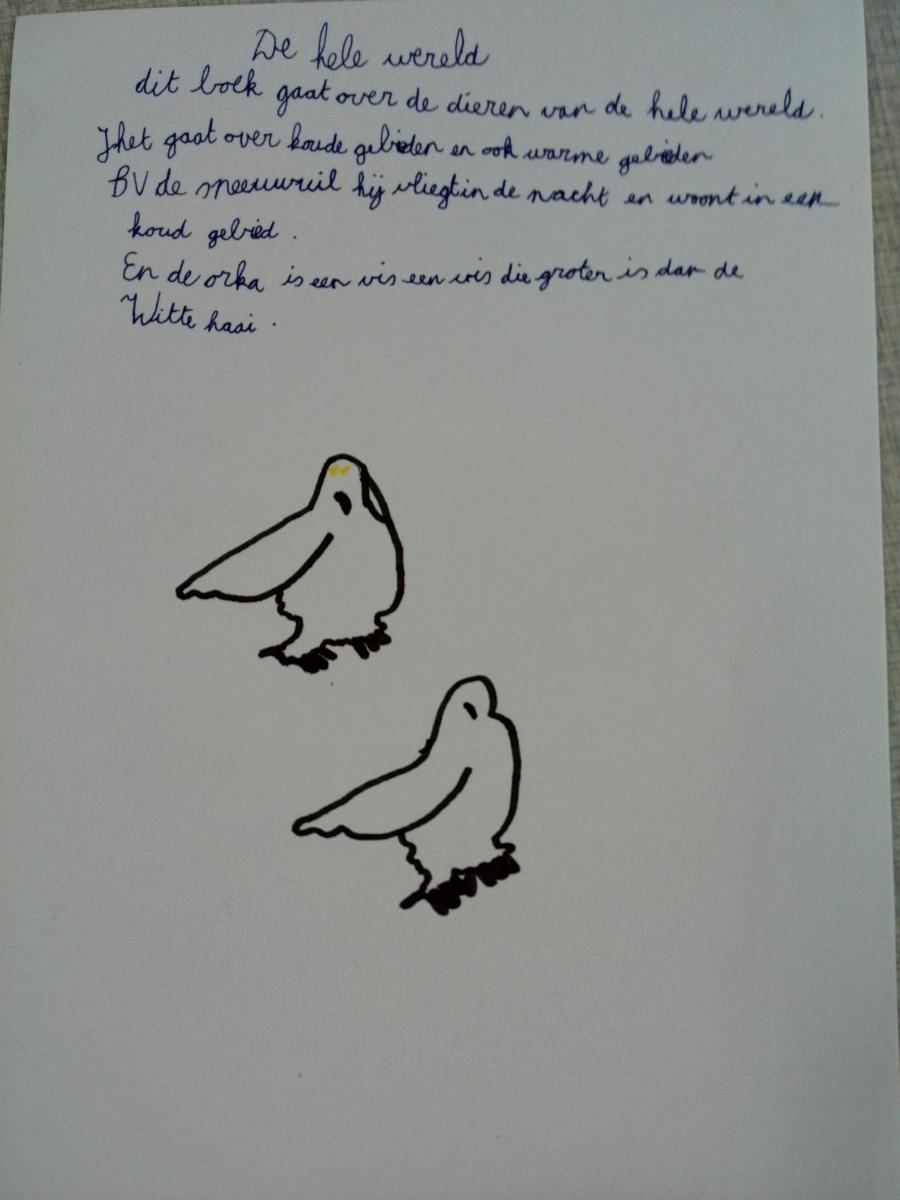 De hele wereld
dit boek gaat over de dieren van de hele wereld.
Het gaat over koude gebieden en ook warme gebieden
BV de sneeuwuil hij vliegt in de nacht en woont in een
koud gebied.
En de orka is een vis een vis die groter is dan de
Witte haai.